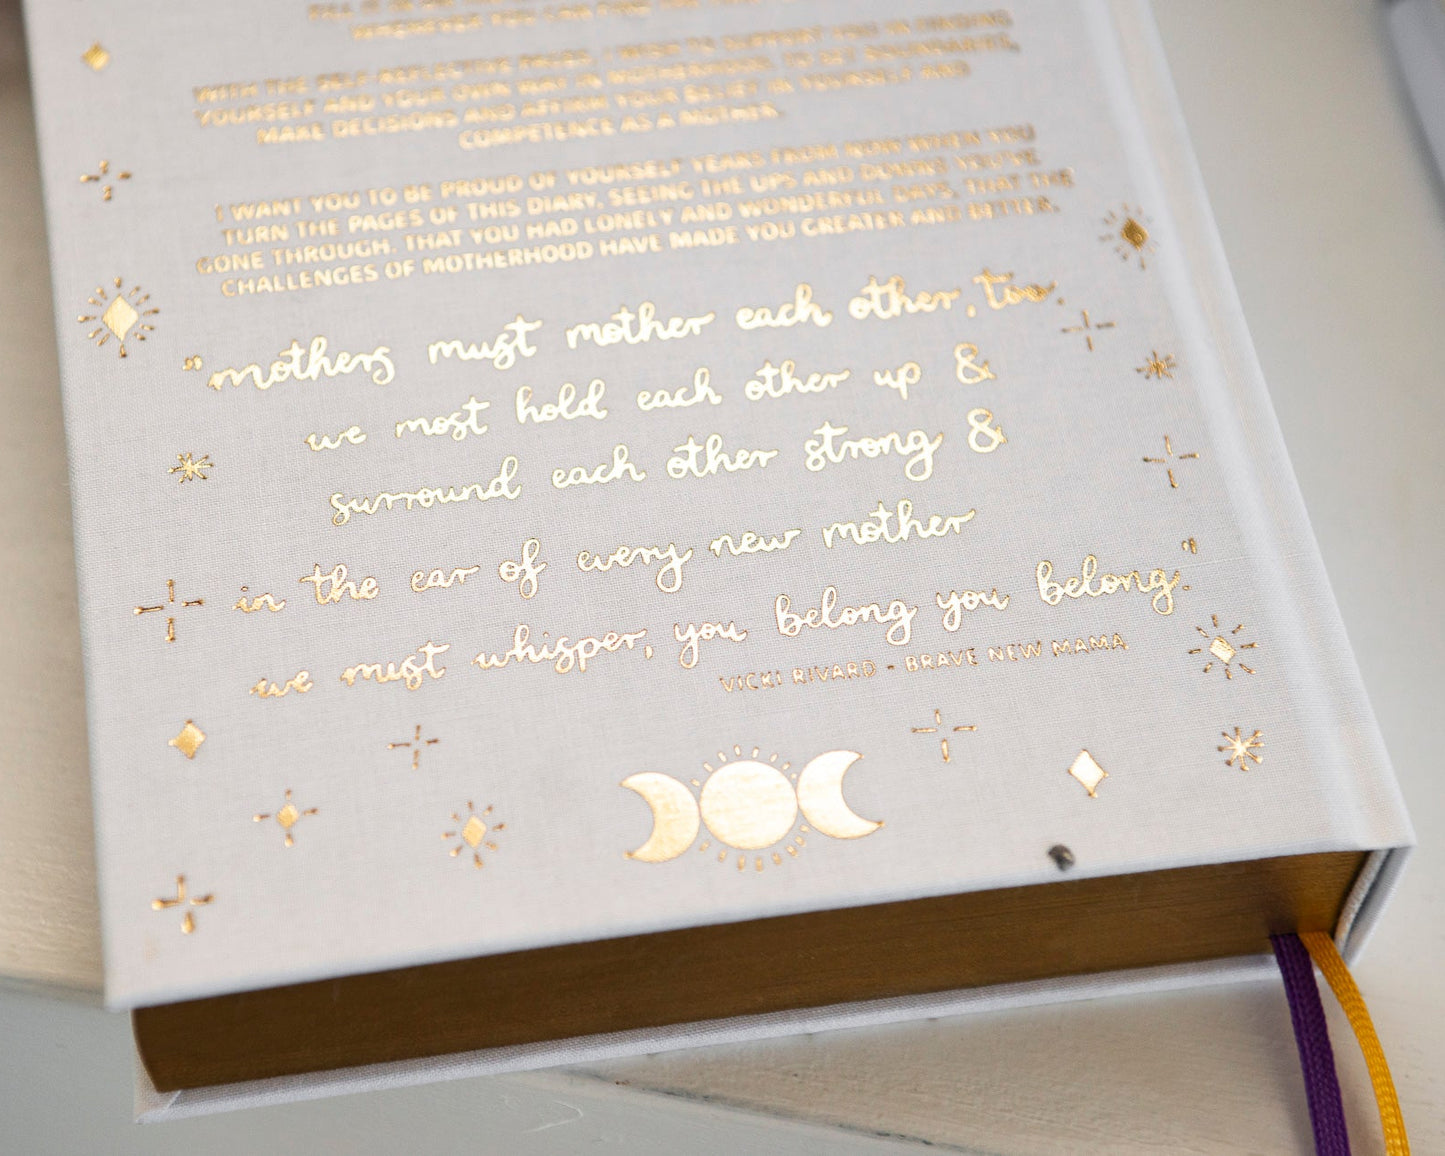 WHEREVER YOU CAN FIND THE
WITH THE SELF-REFLECTIVE PAGES, I WISH TO SUPPORT YOU IN FINDING
YOURSELF AND YOUR OWN WAY IN MOTHERHOOD, TO SET BOUNDARIES,
MAKE DECISIONS AND AFFIRM YOUR BELIEF IN YOURSELF AND
COMPETENCE AS A MOTHER.
I WANT YOU TO BE PROUD OF YOURSELF YEARS FROM NOW WHEN YOU
TURN THE PAGES OF THIS DIARY, SEEING THE UPS AND DOWNS YOU'VE
GONE THROUGH. THAT YOU HAD LONELY AND WONDERFUL DAYS, THAT THE
CHALLENGES OF MOTHERHOOD HAVE MADE YOU GREATER AND BETTER.
"mothers must mother each other, too.
we most hold each other up &
surround each other strong &
in the ear of every new mother
we must whisper, you belong you belong."
VICKI RIVARD - BRAVE NEW MAMA